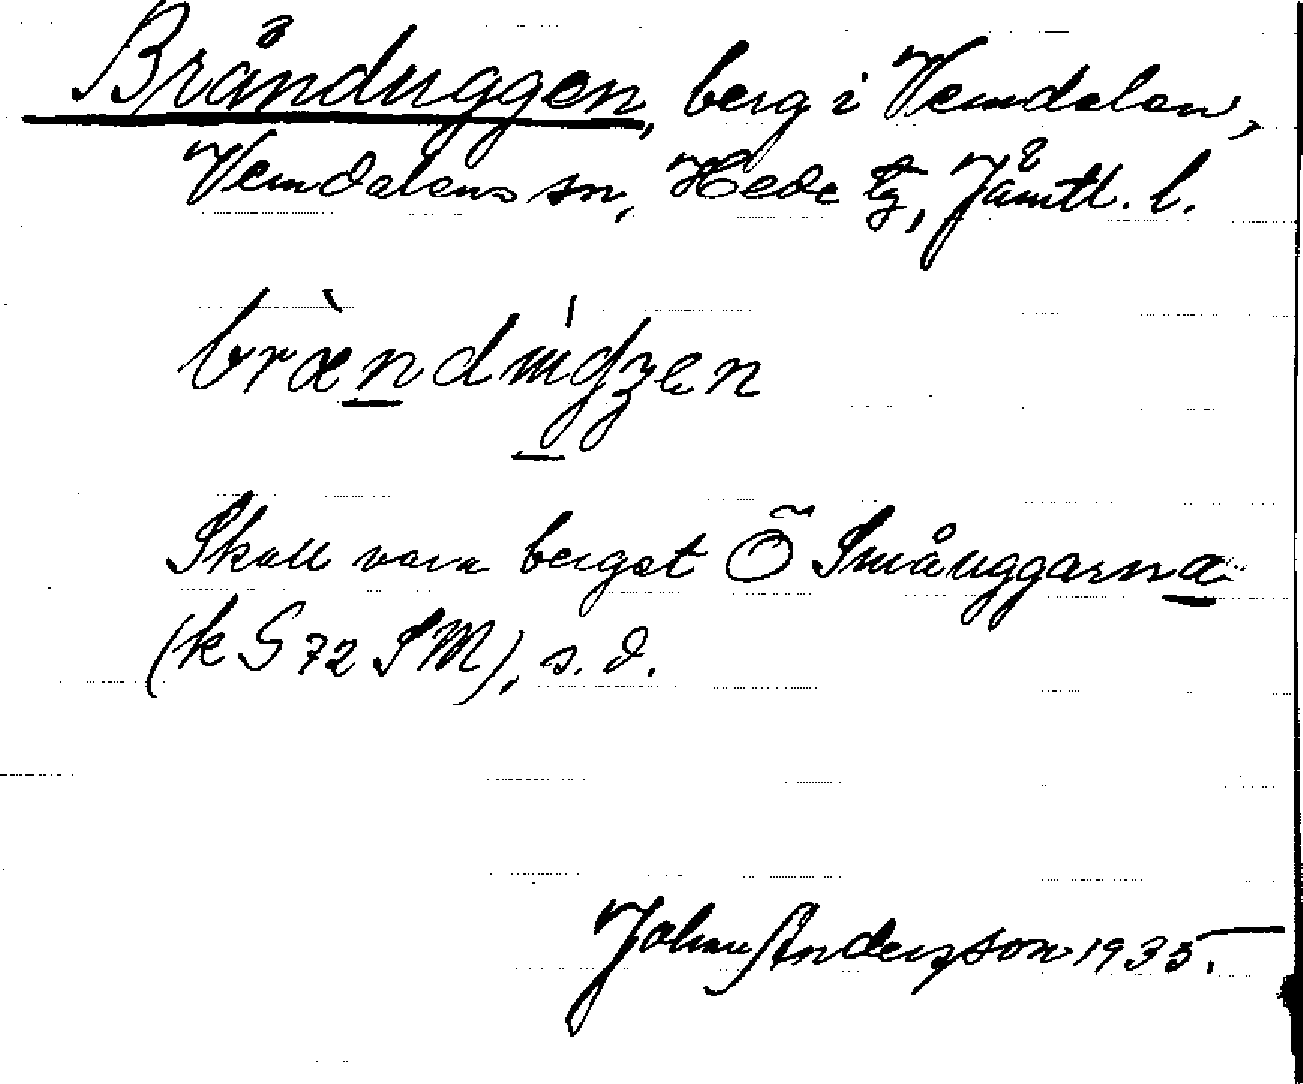 Bränduggen, berg i Vemdalen,
Vemdalens sn, Hede tg, Jämtl. l.
Skall vara berget Ö Småuggarna
(k G 72 SM), s. d.
Johan Andersson 1935.